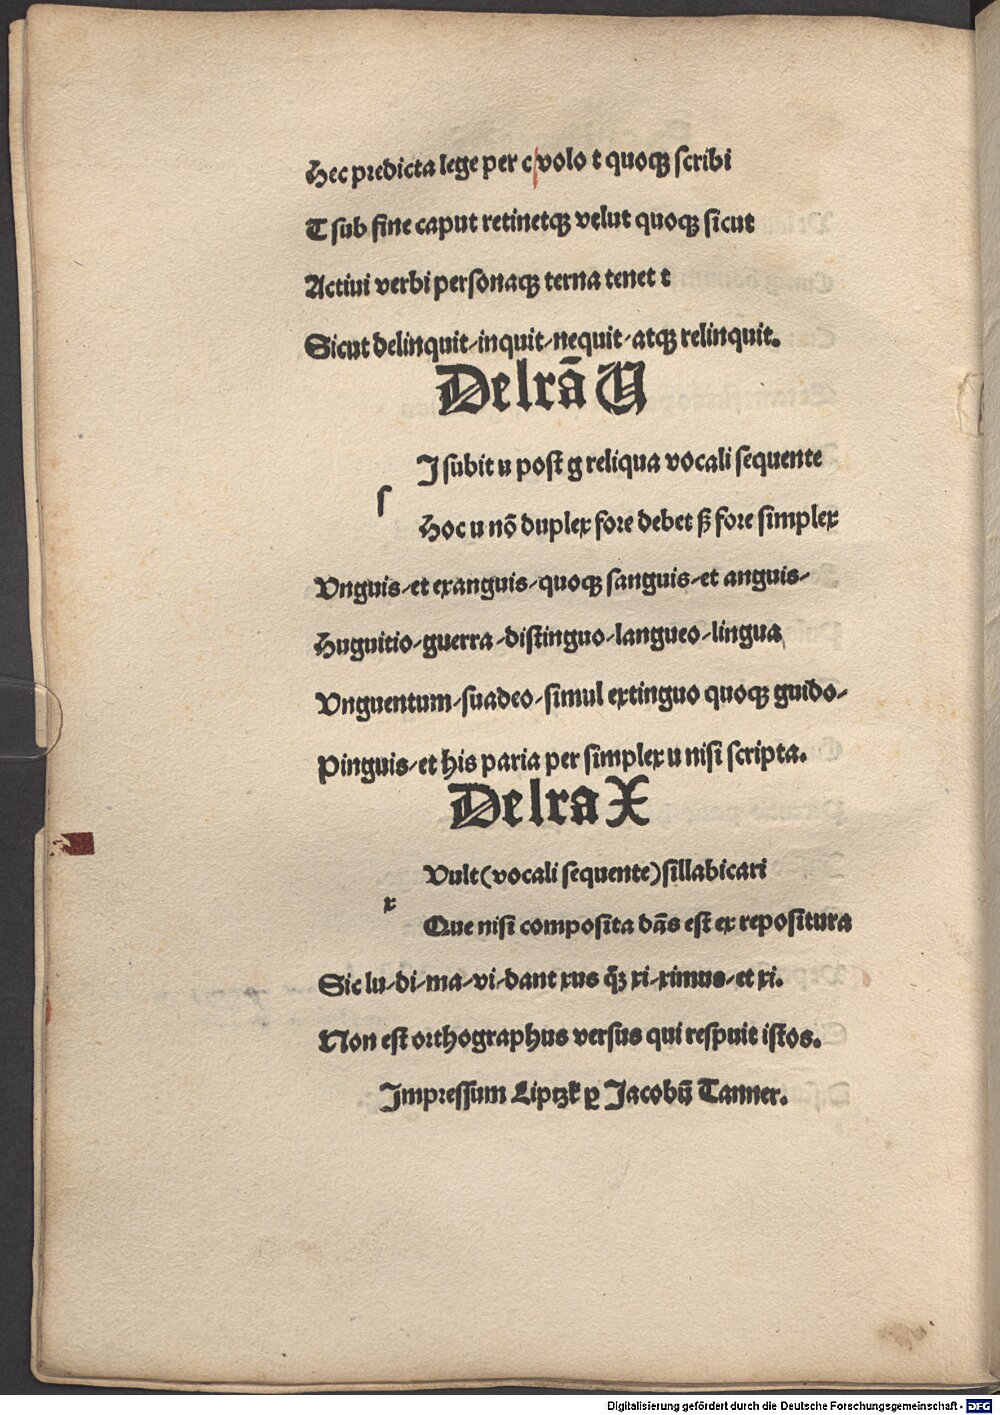 Hec predicta lege per c volo t quoqꝫ scribi
T sub fine caput retinetqꝫ velut quoqꝫ sicut
Actiui verbi personaqꝫ terna tenet t
Sicut delinquit/inquit/nequit/atqꝫ relinquit.
De lrā U
I subit u post g reliqua vocali sequente
ſ
Hoc u nō duplex fore debet ſꝫ fore simplex
Vnguis/et exanguis/quoqꝫ sanguis/et anguis/
Huguitio/guerra/distinguo/langueo/lingua
Vnguentum/suadeo/simul extinguo quoqꝫ guido/
Pinguis/et his paria per simplex u nisi scripta.
De lra X
Vult (vocali sequente) sillabicari
x
Que nisi composita dās est ex repositura
Sic lu/di/ma/vi/dant xus q̄ꝫ xi/ximus/et xi.
Non est orthographus versus qui respuit istos.
Impressum Liptzk ꝑ Jacobū Tanner.
Digitalisierung gefördert durch die Deutsche Forschungsgemeinschaft - DFG